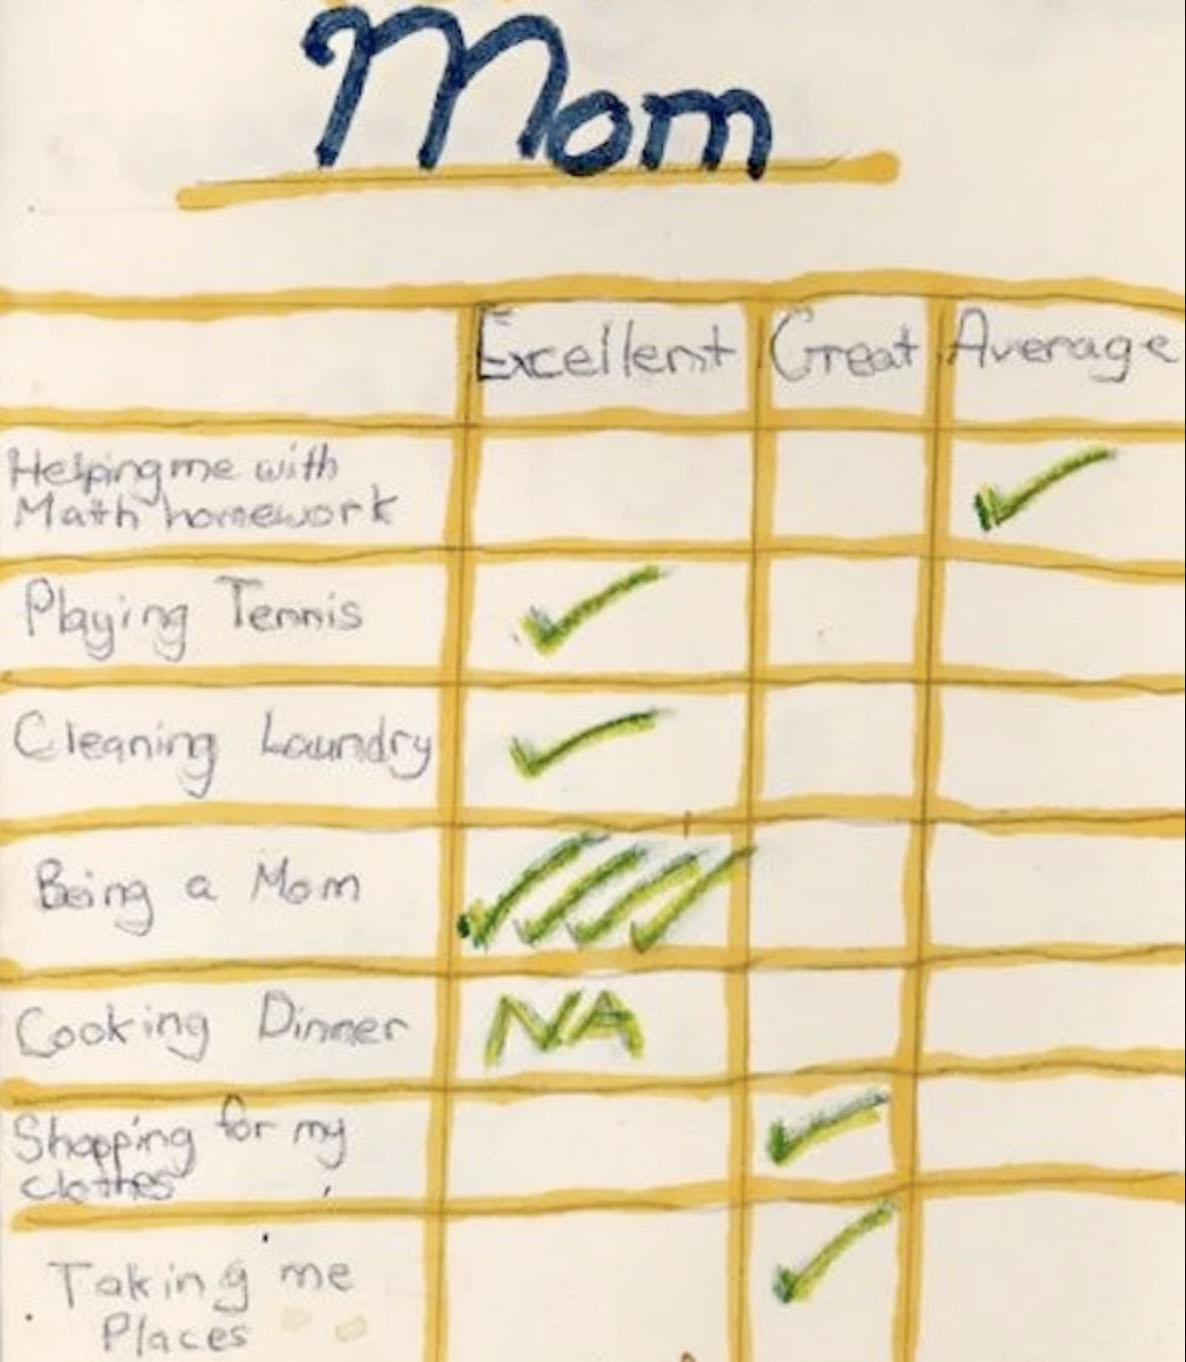 Mom
Excellent Great Average
Helping me with
Math homework
Playing Tennis
Cleaning Laundry
Being a Mom
Cooking Dinner NA
Shopping for my
clothes
Taking me
Places